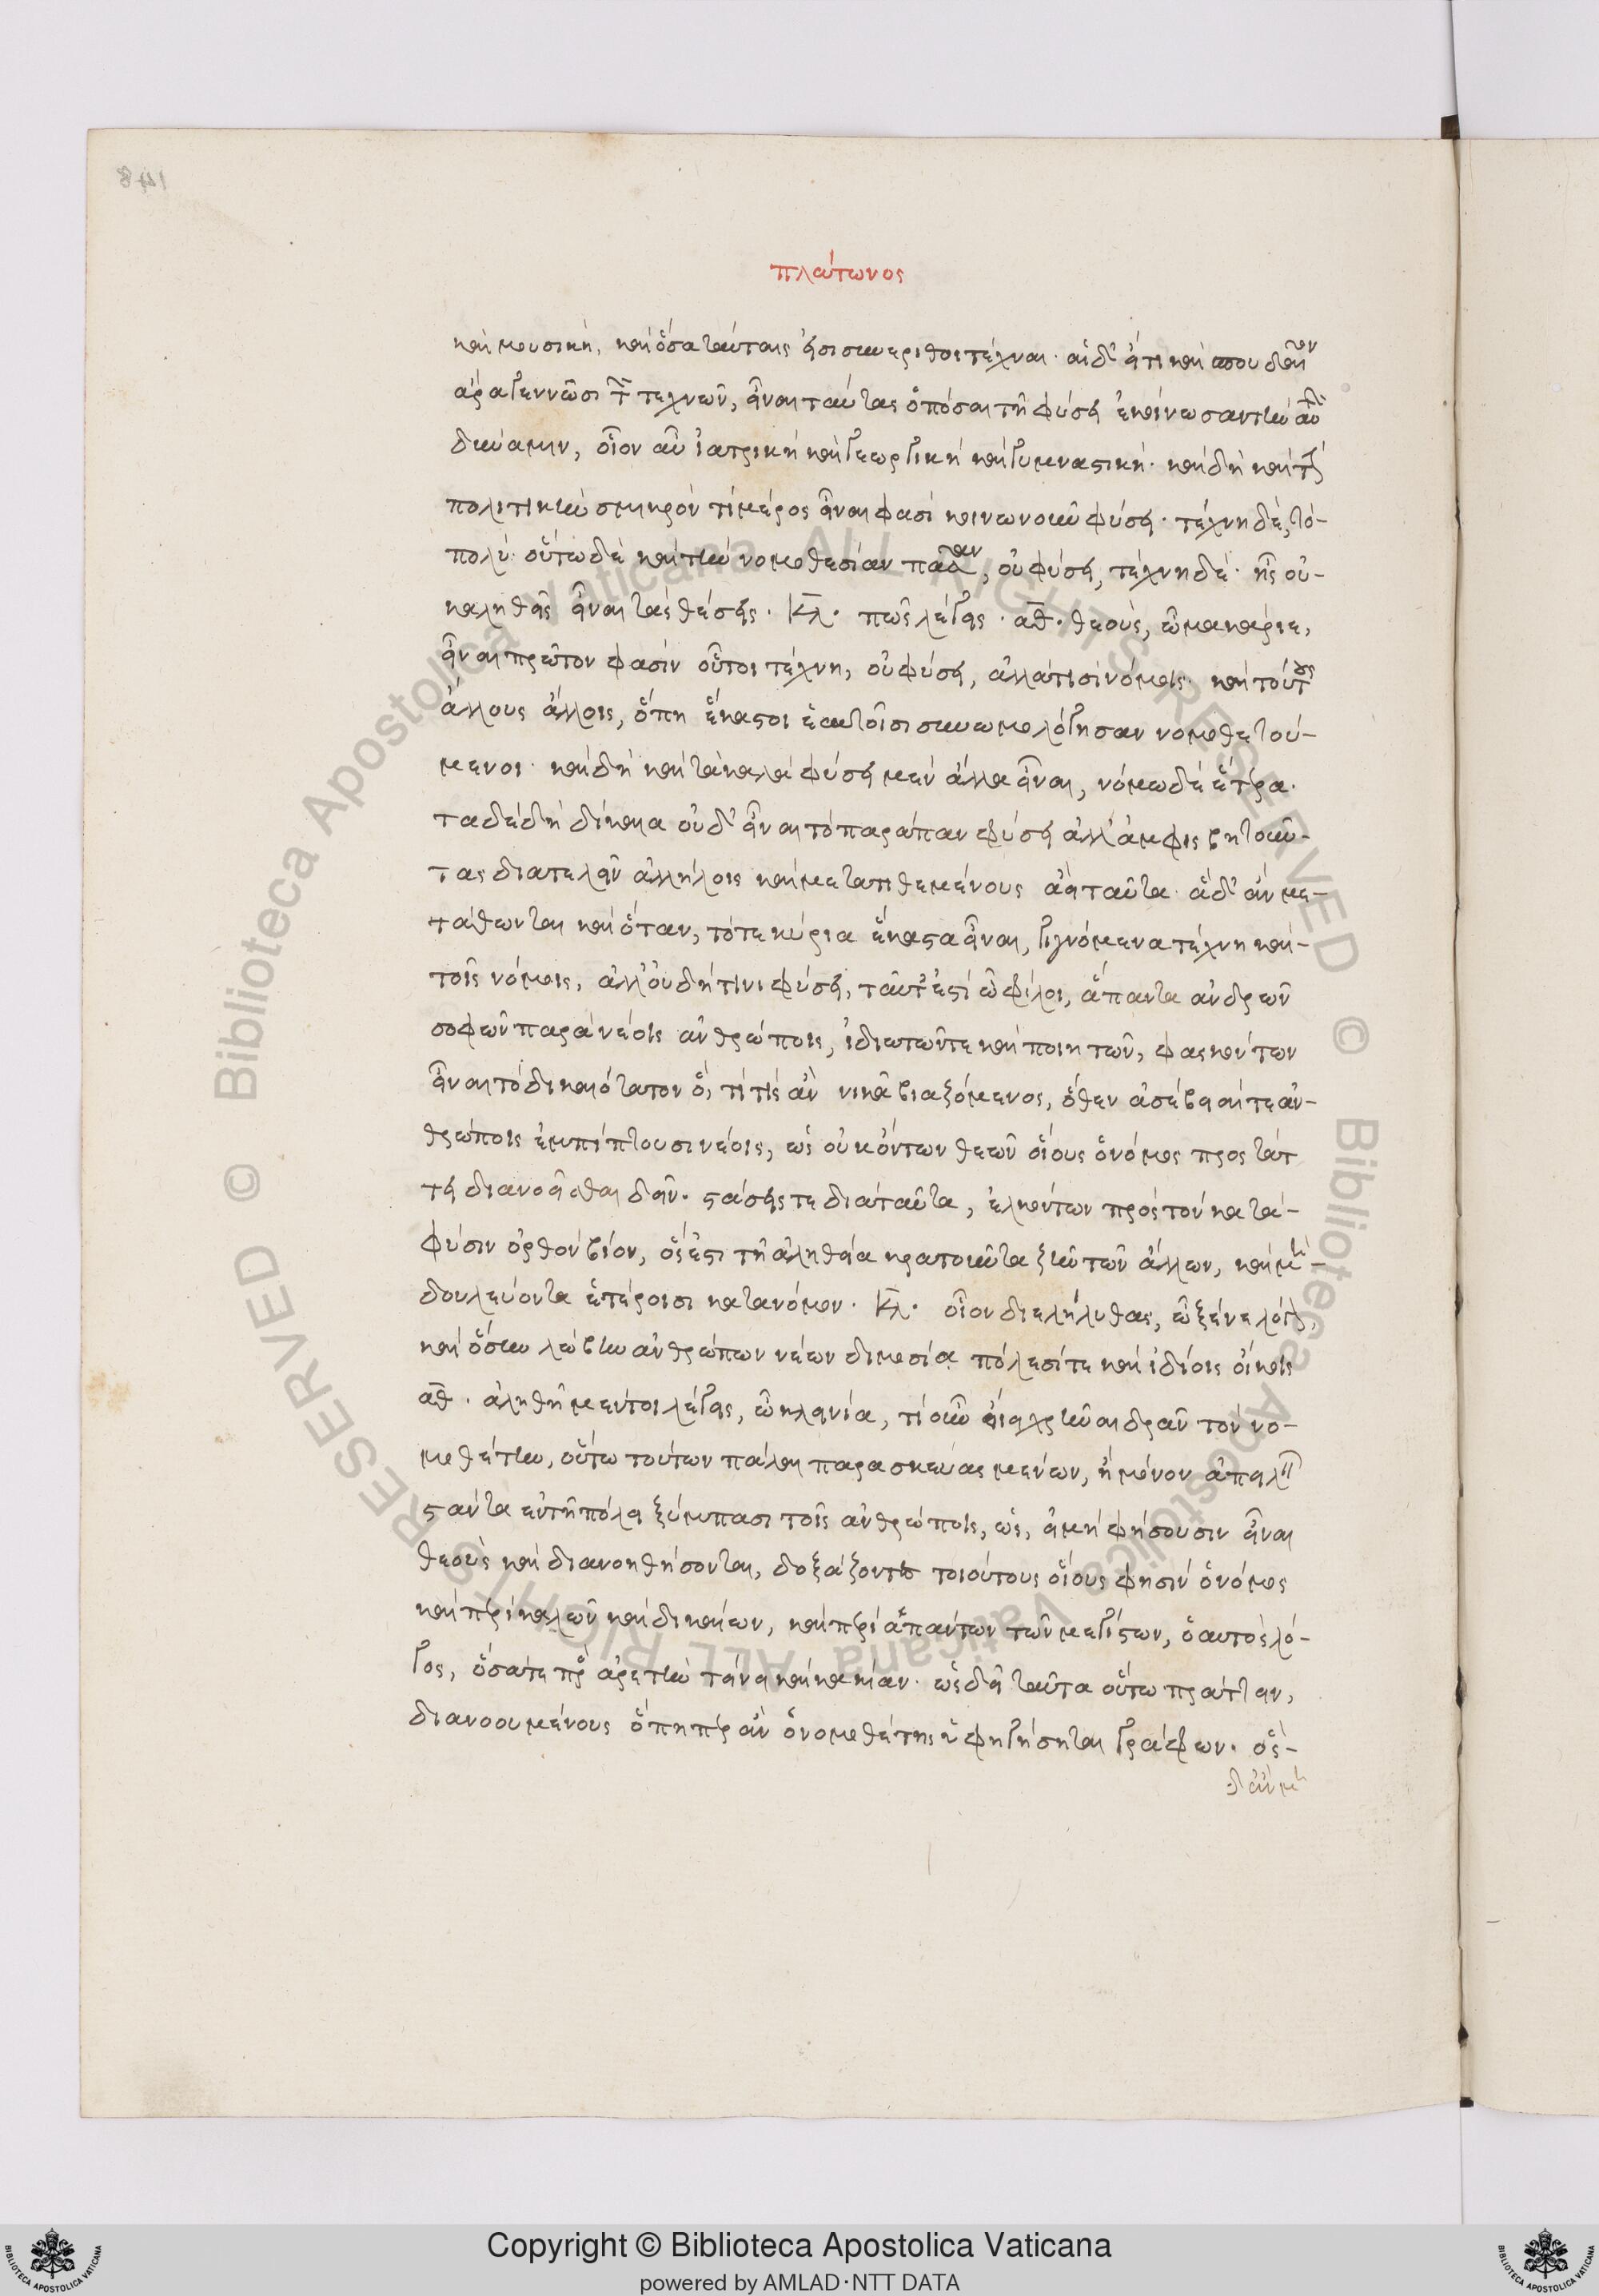 148
πλάτωνος
καὶ μουσικὴ, καὶ ὅσα ταύταις εἰσὶ συνέριθοι τέχναι· αἳ δ' εἴ τι καὶ σπουδαῖον
ἄρα γεννῶσι τῶν τεχνῶν, εἶναι ταύτας ὁπόσαι τῇ φύσει ἐκοίνωσαν τὴν αὑτῶν
δύναμιν, οἷον αὖ ἰατρικὴ καὶ γεωργικὴ καὶ γυμναστική· καὶ δὴ καὶ τῆς
πολιτικὴν σμικρόν τι μέρος εἶναι φασὶ κοινωνοῦν φύσει· τέχνη δὲ, τὸ-
πολύ· οὕτω δὲ καὶ τὴν νομοθεσίαν πᾶσαν, οὐ φύσει, τέχνη δέ· ἧς οὐ-
κ ἀληθεῖς εἶναι τὰς θέσεις. Κλ. πῶς λέγεις. αθ. θεοὺς, ὦ μακάριε,
εἶναι πρῶτον φασὶν οὗτοι τέχνη, οὐ φύσει, ἀλλά τισι νόμοις· καὶ τούτους
ἄλλους ἄλλοις, ὅπη ἕκαστοι ἑαυτοῖσι συνωμολόγησαν νομοθετού-
μενοι· καὶ δὴ καὶ τὰ καλὰ φύσει μὲν ἄλλα εἶναι, νόμω δὲ ἕτερα.
τὰ δὲ δὴ δίκαια οὐδ' εἶναι τὸ παράπαν φύσει ἀλλ' ἀμφισβητοῦν-
τας διατελεῖν ἀλλήλοις καὶ μετατιθεμένους ἀεὶ ταῦτα· ἃ δ' ἂν με-
τάθωνται καὶ ὅταν, τότε κύρια ἕκαστα εἶναι, γιγνόμενα τέχνη καὶ-
τοῖς νόμοις, ἀλλ' οὐ δή τινι φύσει, ταῦτ' ἐστὶ ὦ φίλοι, ἅπαντα ἀνδρῶν
σοφῶν παρὰ νέοις ἀνθρώποις, ἰδιωτῶν τε καὶ ποιητῶν, φασκόντων
εἶναι τὸ δικαιότατον ὅ, τί τις ἂν νικᾷ βιαζόμενος, ὅθεν ἀσέβειαί τε ἀν-
θρώποις ἐμπίπτουσι νέοις, ὡς οὐκ ὄντων θεῶν οἵους ὁ νόμος προστάτ
τει διανοεῖσθαι δεῖν. στάσεις τε διὰ ταῦτα, ἑλκόντων πρὸς τὸν κατὰ-
φύσιν ὀρθὸν βίον, ὅς ἐστι τῇ ἀληθεία κρατοῦντα ζῆν τῶν ἄλλων, καὶ μὴ-
δουλεύοντα ἑτέροισι κατὰ νόμον. Κλ. οἷον διελήλυθας, ὦ ξένε λόγον,
καὶ ὅσην λώβην ἀνθρώπων νέων δημοσία πόλεσί τε καὶ ἰδίοις οἴκοις
αθ. ἀληθῆ μέντοι λέγεις, ὦ κλεινία, τί οὖν οἴει χρῆναι δρᾶν τὸν νο-
μοθέτην, οὕτω τούτων πάλαι παρασκευασμένων, ἢ μόνον ἀπειλή
σαντα ἐν τῇ πόλει ξύμπασι τοῖς ἀνθρώποις, ὡς, εἰ μὴ φήσουσιν εἶναι
θεοὺς καὶ διανοηθήσονται, δοξάζοντες τοιούτους οἵους φησὶν ὁ νόμος
καὶ περὶ καλῶν καὶ δικαίων, καὶ περὶ ἁπάντων τῶν μεγίστων, ὁ αὐτὸς λό-
γος, ὅσα τε πρὸς ἀρετὴν τείνει καὶ κακίαν· ὡς δεῖ ταῦτα οὕτω πράττειν,
διανοουμένους ὅπη περ ἂν ὁ νομοθέτης ὑφηγήσηται γράφων. ὃς-
δ' ἂν μὴ
Copyright © Biblioteca Apostolica Vaticana
powered by AMLAD·NTT DATA